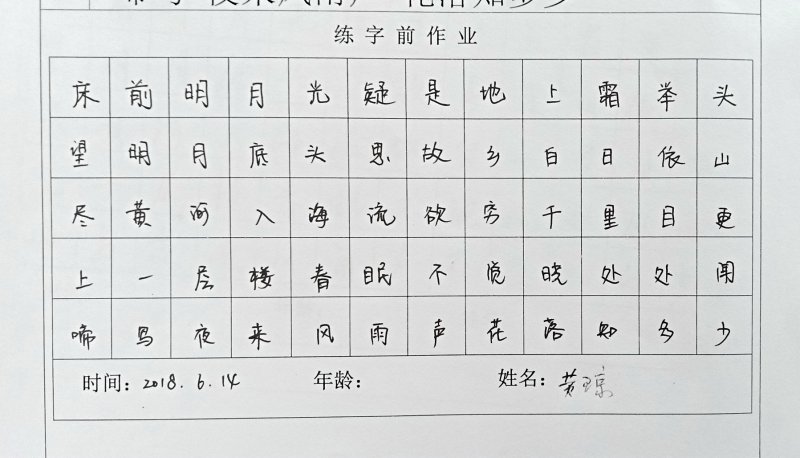 练字前作业
床前明月光疑是地上霜举头
望明月底头思故乡白日依山
尽黄河入海流欲穷千里目更
上一层楼春眠不觉晓处处闻
啼鸟夜来风雨声花落知多少
时间：2018.6.14 年龄： 姓名：黄琼